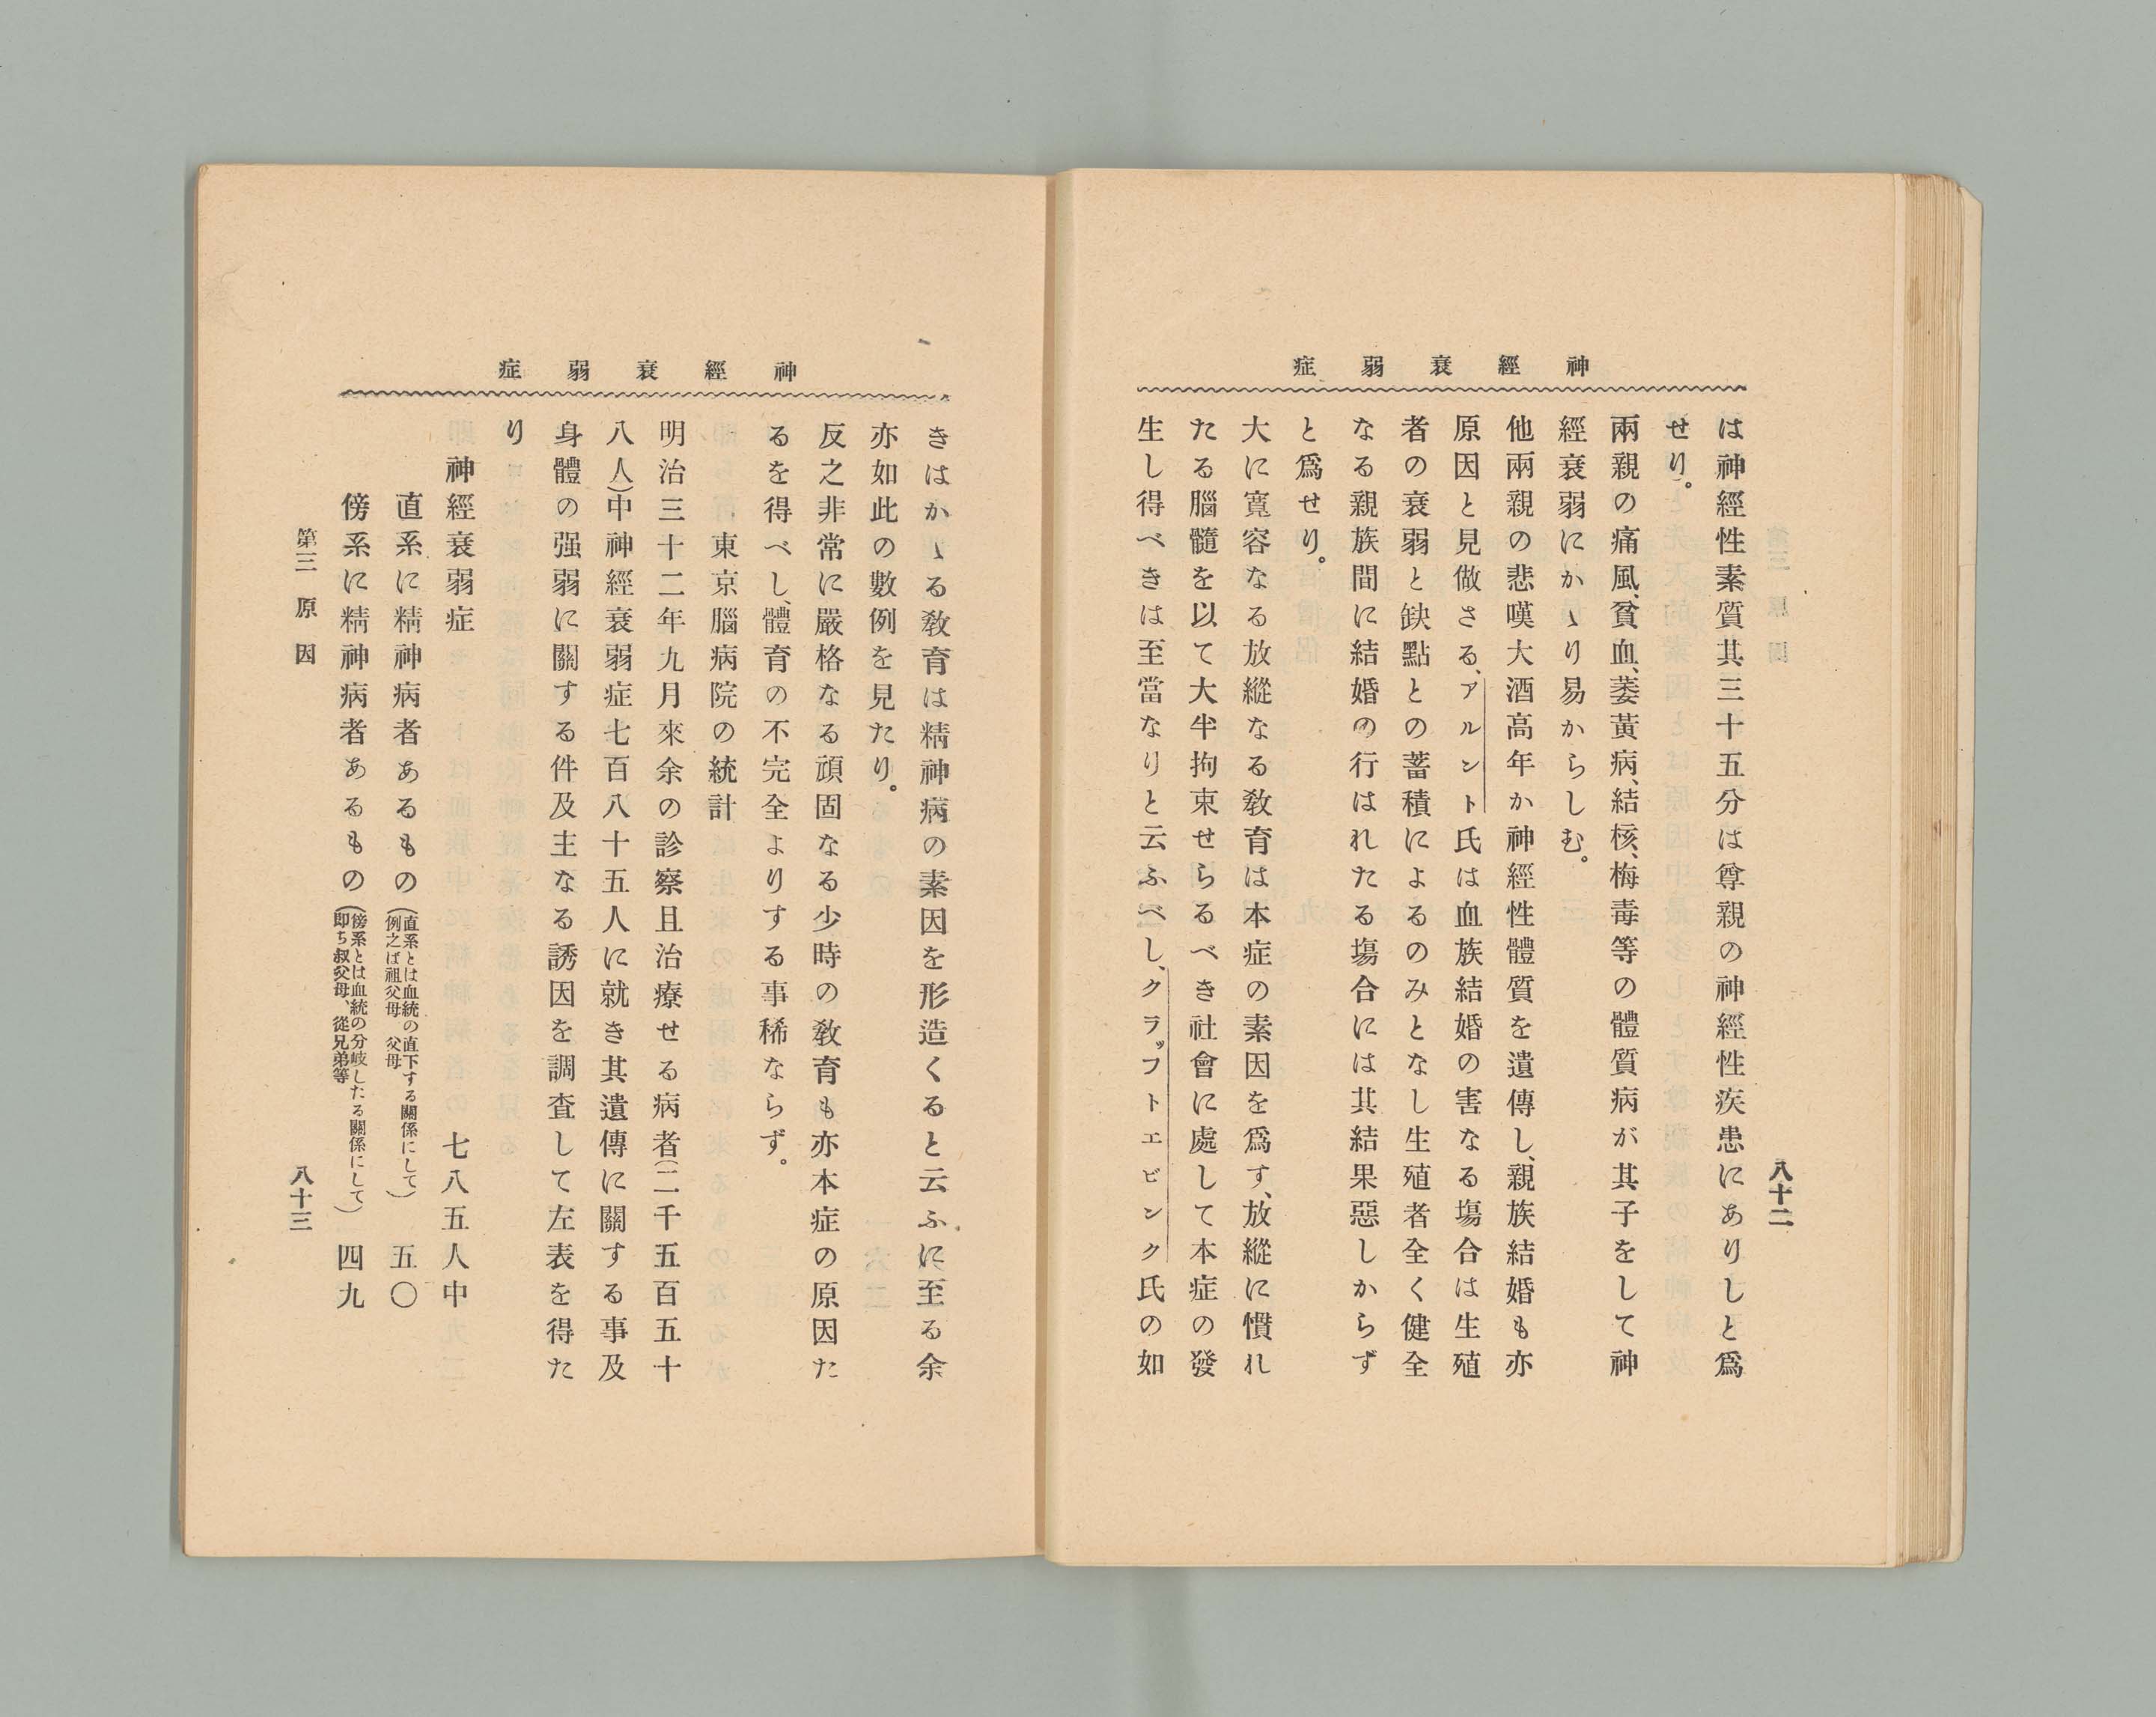 神經衰弱症
八十二
は神經性素質其三十五分は尊親の神經性疾患にありしと爲
せり。
兩親の痛風、貧血、萎黃病、結核、梅毒等の體質病が其子をして神
經衰弱にかゝり易からしむ。
他兩親の悲嘆大酒高年か神經性體質を遺傳し、親族結婚も亦
原因と見做さる、アルント氏は血族結婚の害なる塲合は生殖
者の衰弱と缺點との蓄積によるのみとなし生殖者全く健全
なる親族間に結婚の行はれたる塲合には其結果惡しからず
と爲せり。
大に寬容なる放縱なる敎育は本症の素因を爲す、放縱に慣れ
たる腦髓を以て大半拘束せらるべき社會に處して本症の發
生し得べきは至當なりと云ふべし、クラッフトエビンク氏の如
神經衰弱症
きはかゝる敎育は精神病の素因を形造くると云ふに至る余
亦如此の數例を見たり。
反之非常に嚴格なる頑固なる少時の敎育も亦本症の原因た
るを得べし、體育の不完全よりする事稀ならず。
東京腦病院の統計
明治三十二年九月來余の診察且治療せる病者(二千五百五十
八人)中神經衰弱症七百八十五人に就き其遺傳に關する事及
身體の强弱に關する件及主なる誘因を調査して左表を得た
り
神經衰弱症 七八五人中
直系に精神病者あるもの(直系とは血統の直下する關係にして例之ば祖父母 父母) 五〇
傍系に精神病者あるもの(傍系とは血統の分岐したる關係にして即ち叔父母、從兄弟等) 四九
第三 原因
八十三